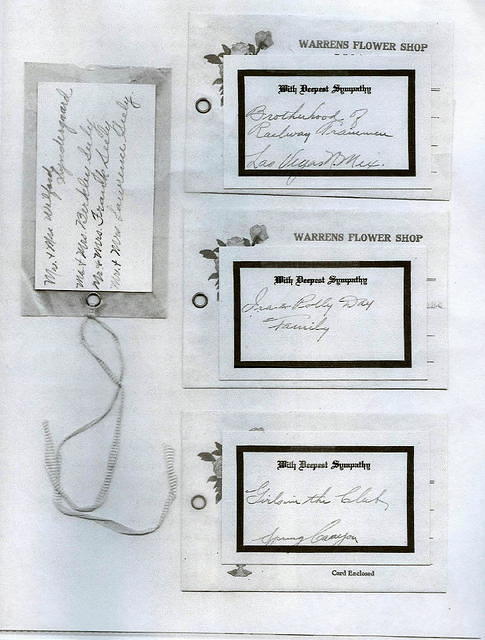 Mr. & Mrs Wilford
Syndergaard
Mr & Mrs. Berkley Seely
Mr & Mrs. Frank Seely
Mr & Mrs Lawrence Seely
WARRENS FLOWER SHOP
With Deepest Sympathy
Brotherhood of
Railway Trainmen
Las Vegas N. Mex.
WARRENS FLOWER SHOP
With Deepest Sympathy
Polly Day
Family
With Deepest Sympathy
Girls in the Club
Spring Canyon
Card Enclosed